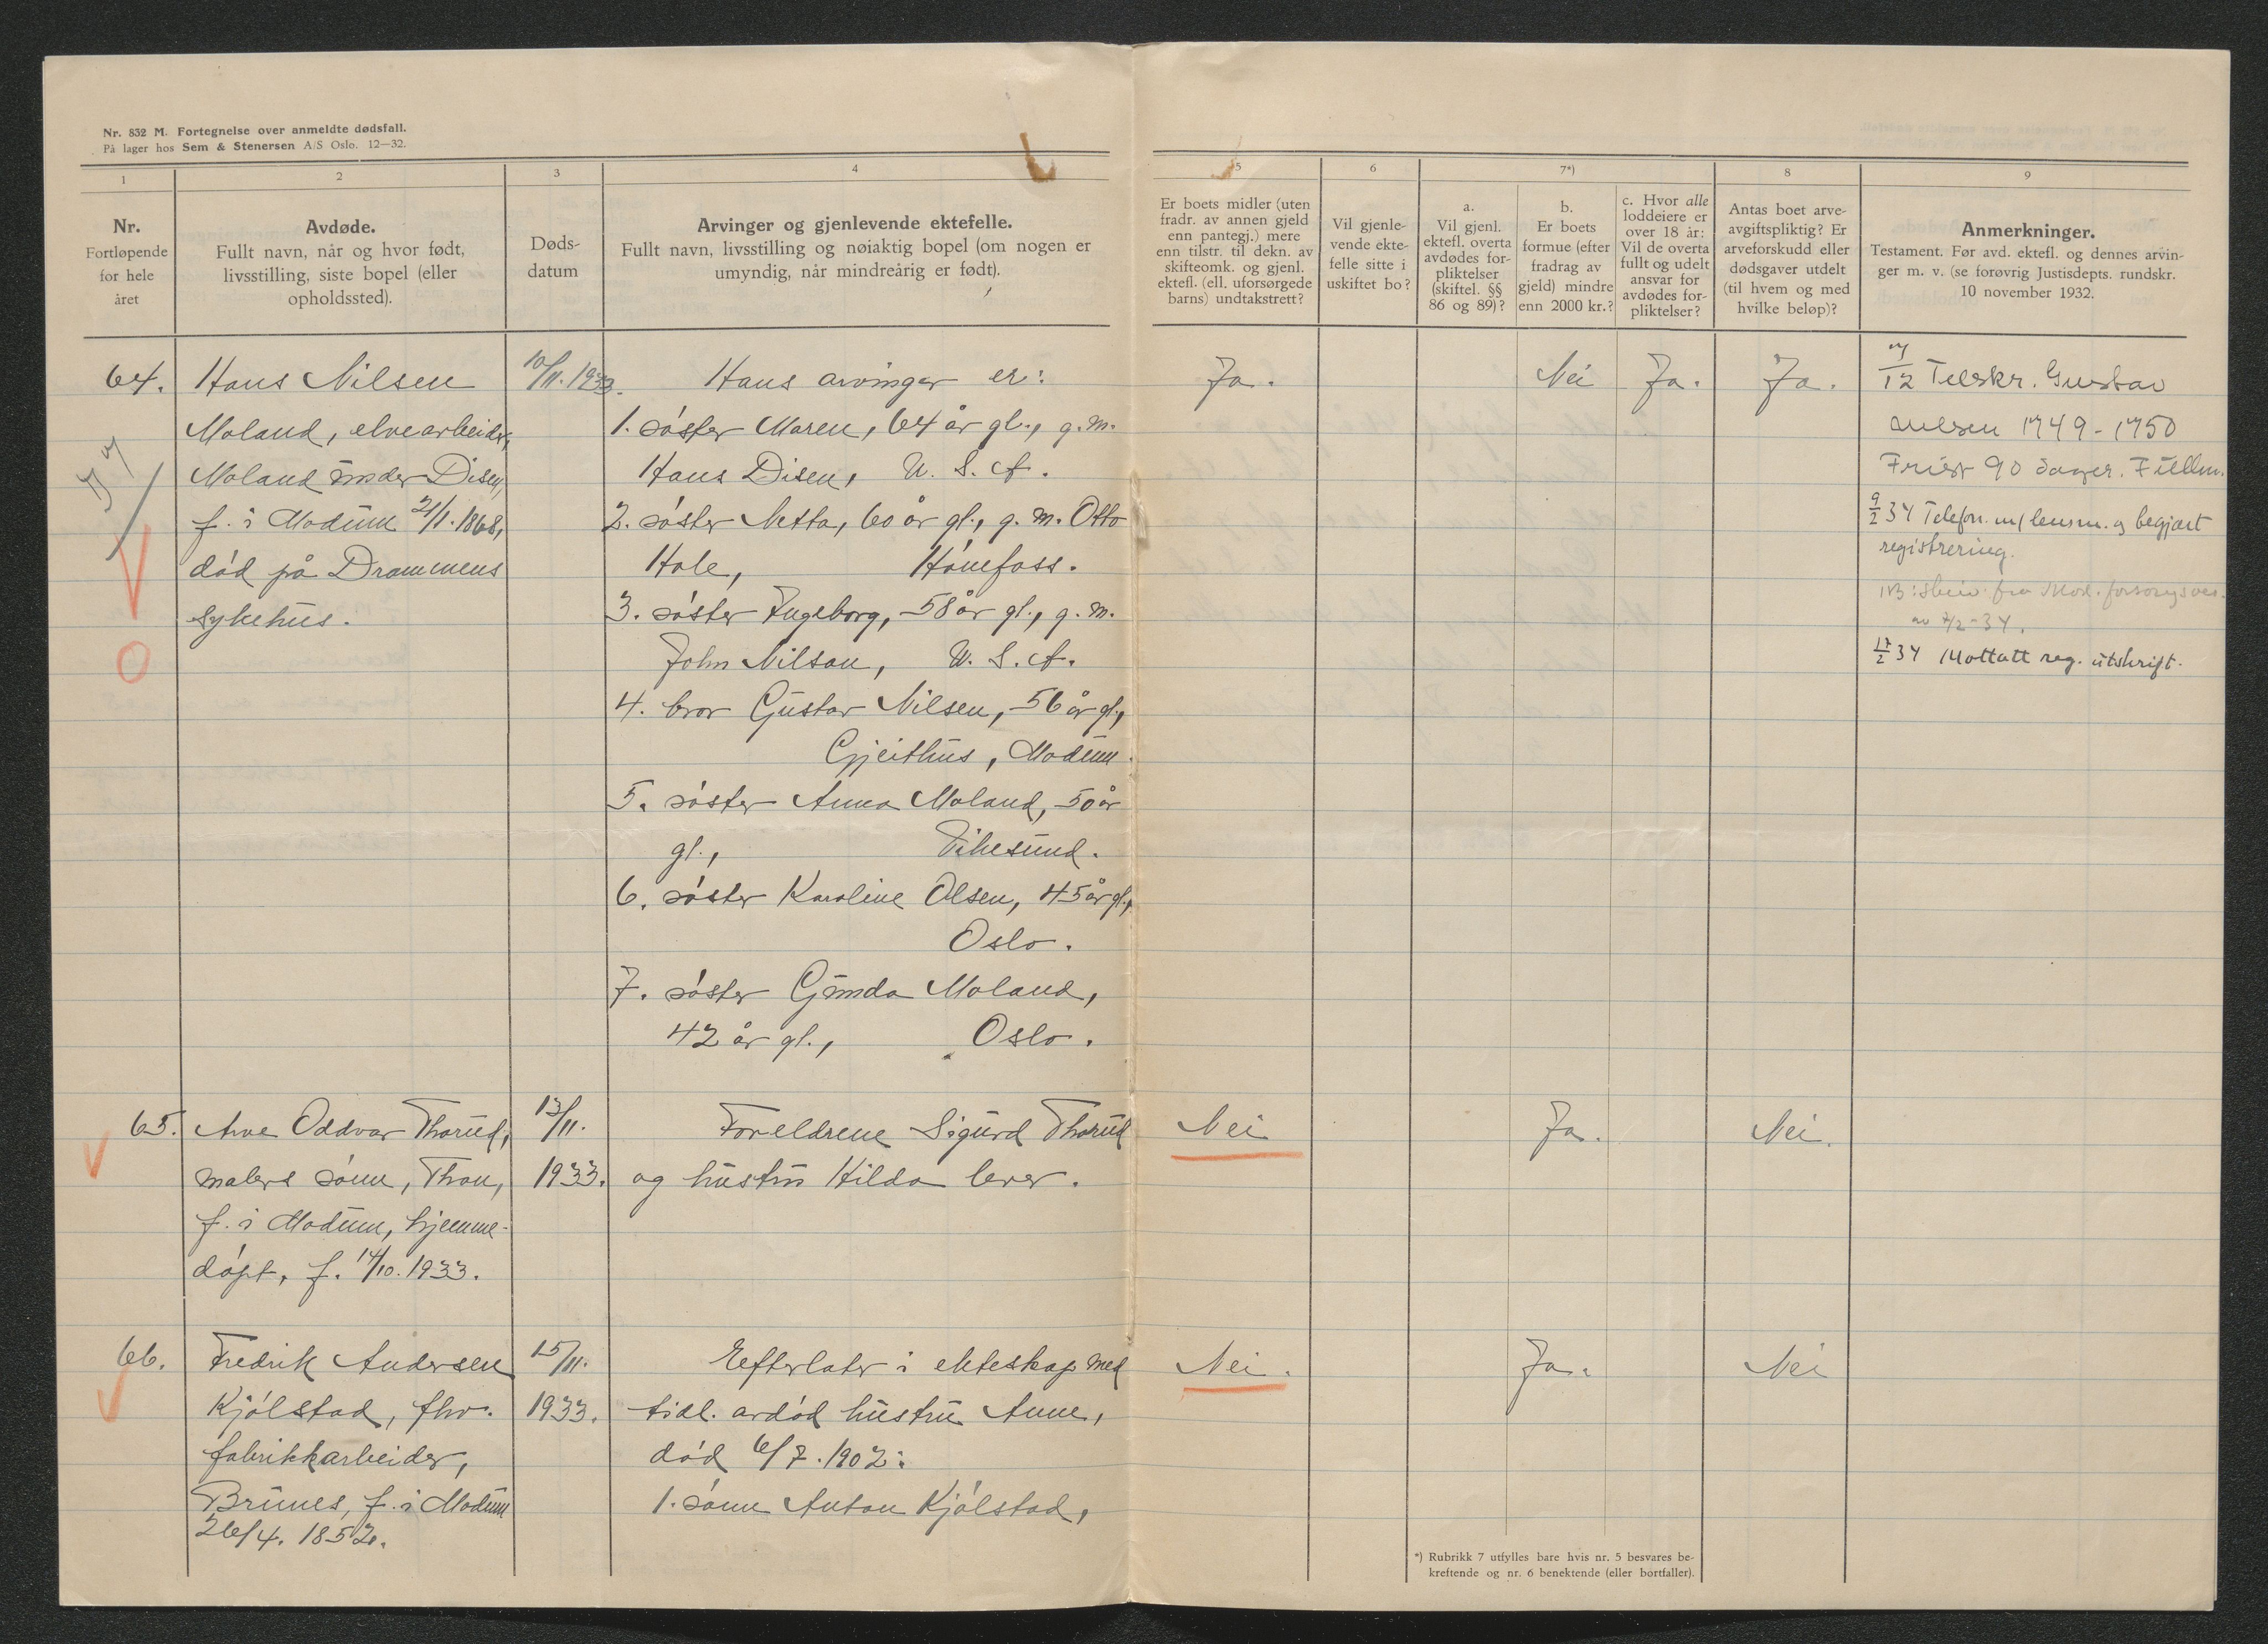 Nr. 832 M. Fortegnelse over anmeldte dødsfall.
På lager hos Sem & Stenersen A/S Oslo. 12—32.
1
2
3
4
Nr.
Fortløpende
for hele
året
Avdøde.
Fullt navn, når og hvor født,
livsstilling, siste bopel (eller
opholdssted).
Døds-
datum
Arvinger og gjenlevende ektefelle.
Fullt navn, livsstilling og nøiaktig bopel (om nogen er
umyndig, når mindreårig er født).
5
6
7*)
8
9
Er boets midler (uten
fradr. av annen gjeld
enn pantegj.) mere
enn tilstr. til dekn. av
skifteomk. og gjenl.
ektefl. (ell. uforsørgede
barns) undtakstrett?
Vil gjenle-
vende ekte-
felle sitte i
uskiftet bo?
a.
Vil gjenl.
ektefl. overta
avdødes for-
pliktelser
(skiftel. §§
86 og 89)?
b.
Er boets
formue (efter
fradrag av
gjeld) mindre
enn 2000 kr.?
c. Hvor alle
loddeiere er
over 18 år:
Vil de overta
fullt og udelt
ansvar for
avdødes for-
pliktelser?
Antas boet arve-
avgiftspliktig? Er
arveforskudd eller
dødsgaver utdelt
(til hvem og med
hvilke beløp)?
Anmerkninger.
Testament. Før avd. ektefl. og dennes arvin-
ger m. v. (se forøvrig Justisdepts. rundskr.
10 november 1932.
64.
Hans Nilsen
Moland, elvearbeider,
Moland under Disen,
f. i Modum 21/1.1868,
død på Drammens
sykehus.
10/11.1933.
Hans arvinger er:
1. søster Maren, 64 år gl., g. m.
Hans Disen, U. S. A.
2. søster Netta, 60 år gl., g. m. Otto
Hole, Hønefoss.
3. søster Ingeborg, 58 år gl., g. m.
John Nilson, U. S. A.
4. bror Gustav Nilsen, 56 år gl.,
Gjeithus, Modum.
5. søster Anna Moland, 50 år
gl., Vikesund.
6. søster Karoline Olsen, 45 år gl.,
Oslo.
7. søster Gunda Moland,
42 år gl., Oslo.
Ja.
Nei
Ja.
Ja.
7/12 Tilskr. Gustav
Nilsen 1749-1750
Frist 90 dager.
9/2 34 Telefon. m/ lensm. og begjært
registrering.
NB: skriv fra Mod. forsorgsves.
av 7/2-34.
17/2 34 Mottatt reg. utskrift.
65.
Arve Oddvar Thorud,
malers sønn, Thon,
f. i Modum, hjemme-
døpt, f. 14/10.1933.
13/11.
1933.
Foreldrene Sigurd Thorud
og hustru Hilda lever.
Nei
Ja.
Nei.
66.
Fredrik Andersen
Kjølstad, fhv.
fabrikkarbeider,
Brunes, f. i Modum
26/4. 1852.
15/11.
1933.
Efterlater i ekteskap med
tidl. avdød hustru Anne,
død 6/7.1902:
1. sønn Anton Kjølstad,
Nei.
Ja.
Nei
*) Rubrikk 7 utfylles bare hvis nr. 5 besvares be-
kreftende og nr. 6 benektende (eller bortfaller).